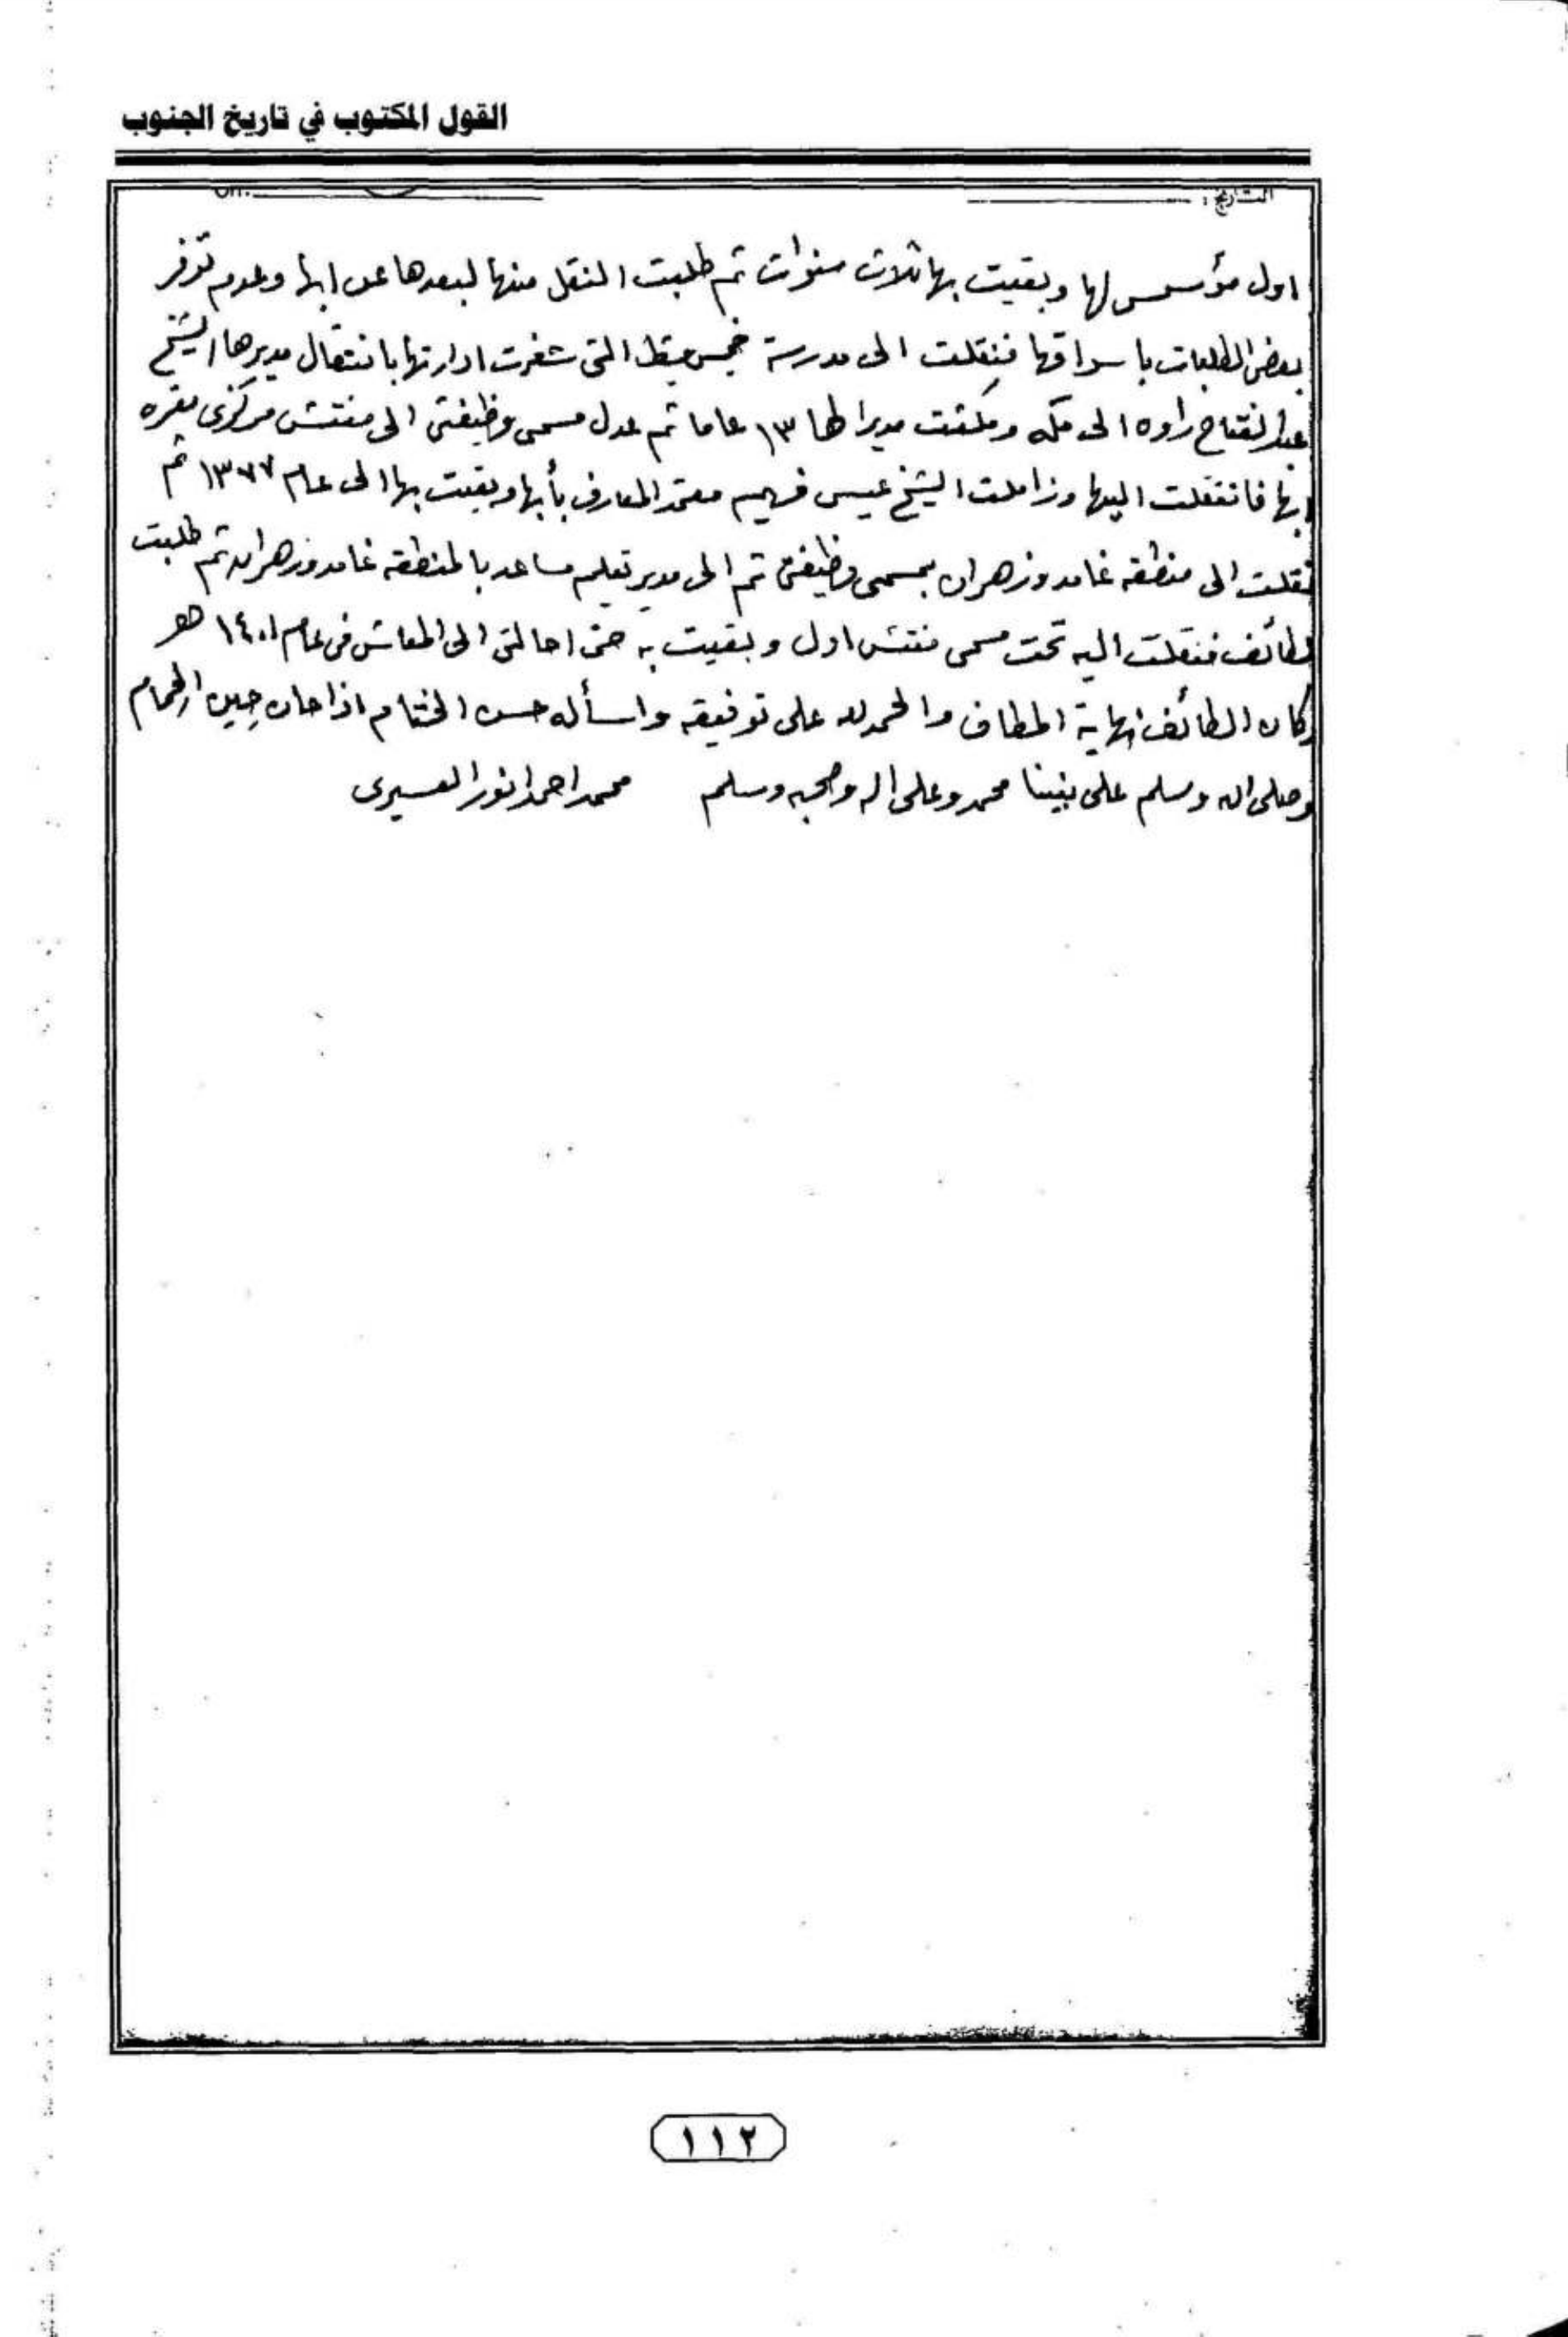 القول المكتوب في تاريخ الجنوب
التاريخ :
اول مؤسس لها وبقيت بها ثلاث سنوات ثم طلبت النقل منها لبعدها عن ابها وعدم توفر
بعض الطلبات باسواقها فنقلت الى مدرسة خميس مشيط التى شغرت ادارتها بانتقال مديرها الشيخ
عبد الفتاح راوه الى مكه ومكثت مديرا لها ١٣ عاما ثم عدل مسمى وظيفتى الى مفتش مركزى مقره
ابها فانتقلت اليها وزاملت الشيخ عيسى فهيم معتمد المعارف بأبها وبقيت بها الى عام ١٣٧٧ ثم
نقلت الى منطقه غامد وزهران بمسمى وظيفتى ثم الى مدير تعليم مساعد بالمنطقه غامد وزهران ثم طلبت
الطائف فنقلت اليه تحت مسمى مفتش اول وبقيت به حتى احالتى الى المعاش فى عام ١٤٠١ هـ
وكان الطائف نهاية المطاف والحمد لله على توفيقه واسأله حسن الختام اذا حان حِين الحمام
وصلى الله وسلم على نبينا محمد وعلى اله وصحبه وسلم محمد احمد انور العسيرى
١١٢